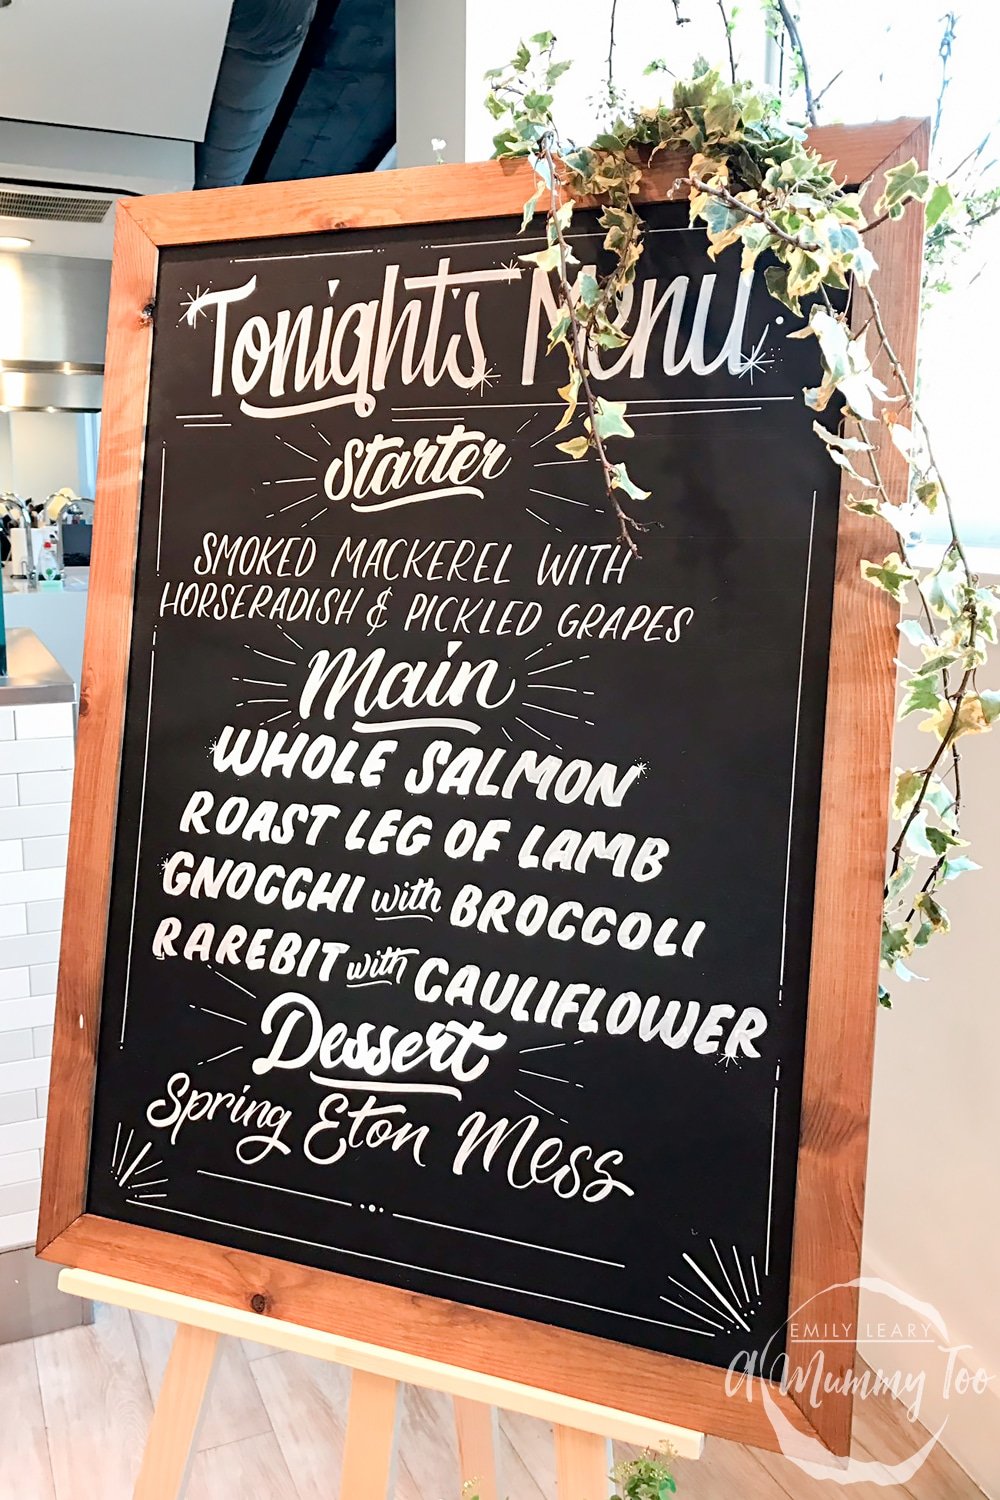 Tonight's Menu
Starter
SMOKED MACKEREL WITH
HORSERADISH & PICKLED GRAPES
Main
WHOLE SALMON
ROAST LEG OF LAMB
GNOCCHI with BROCCOLI
RAREBIT with CAULIFLOWER
Dessert
Spring Eton Mess
EMILY LEARY
A Mummy Too